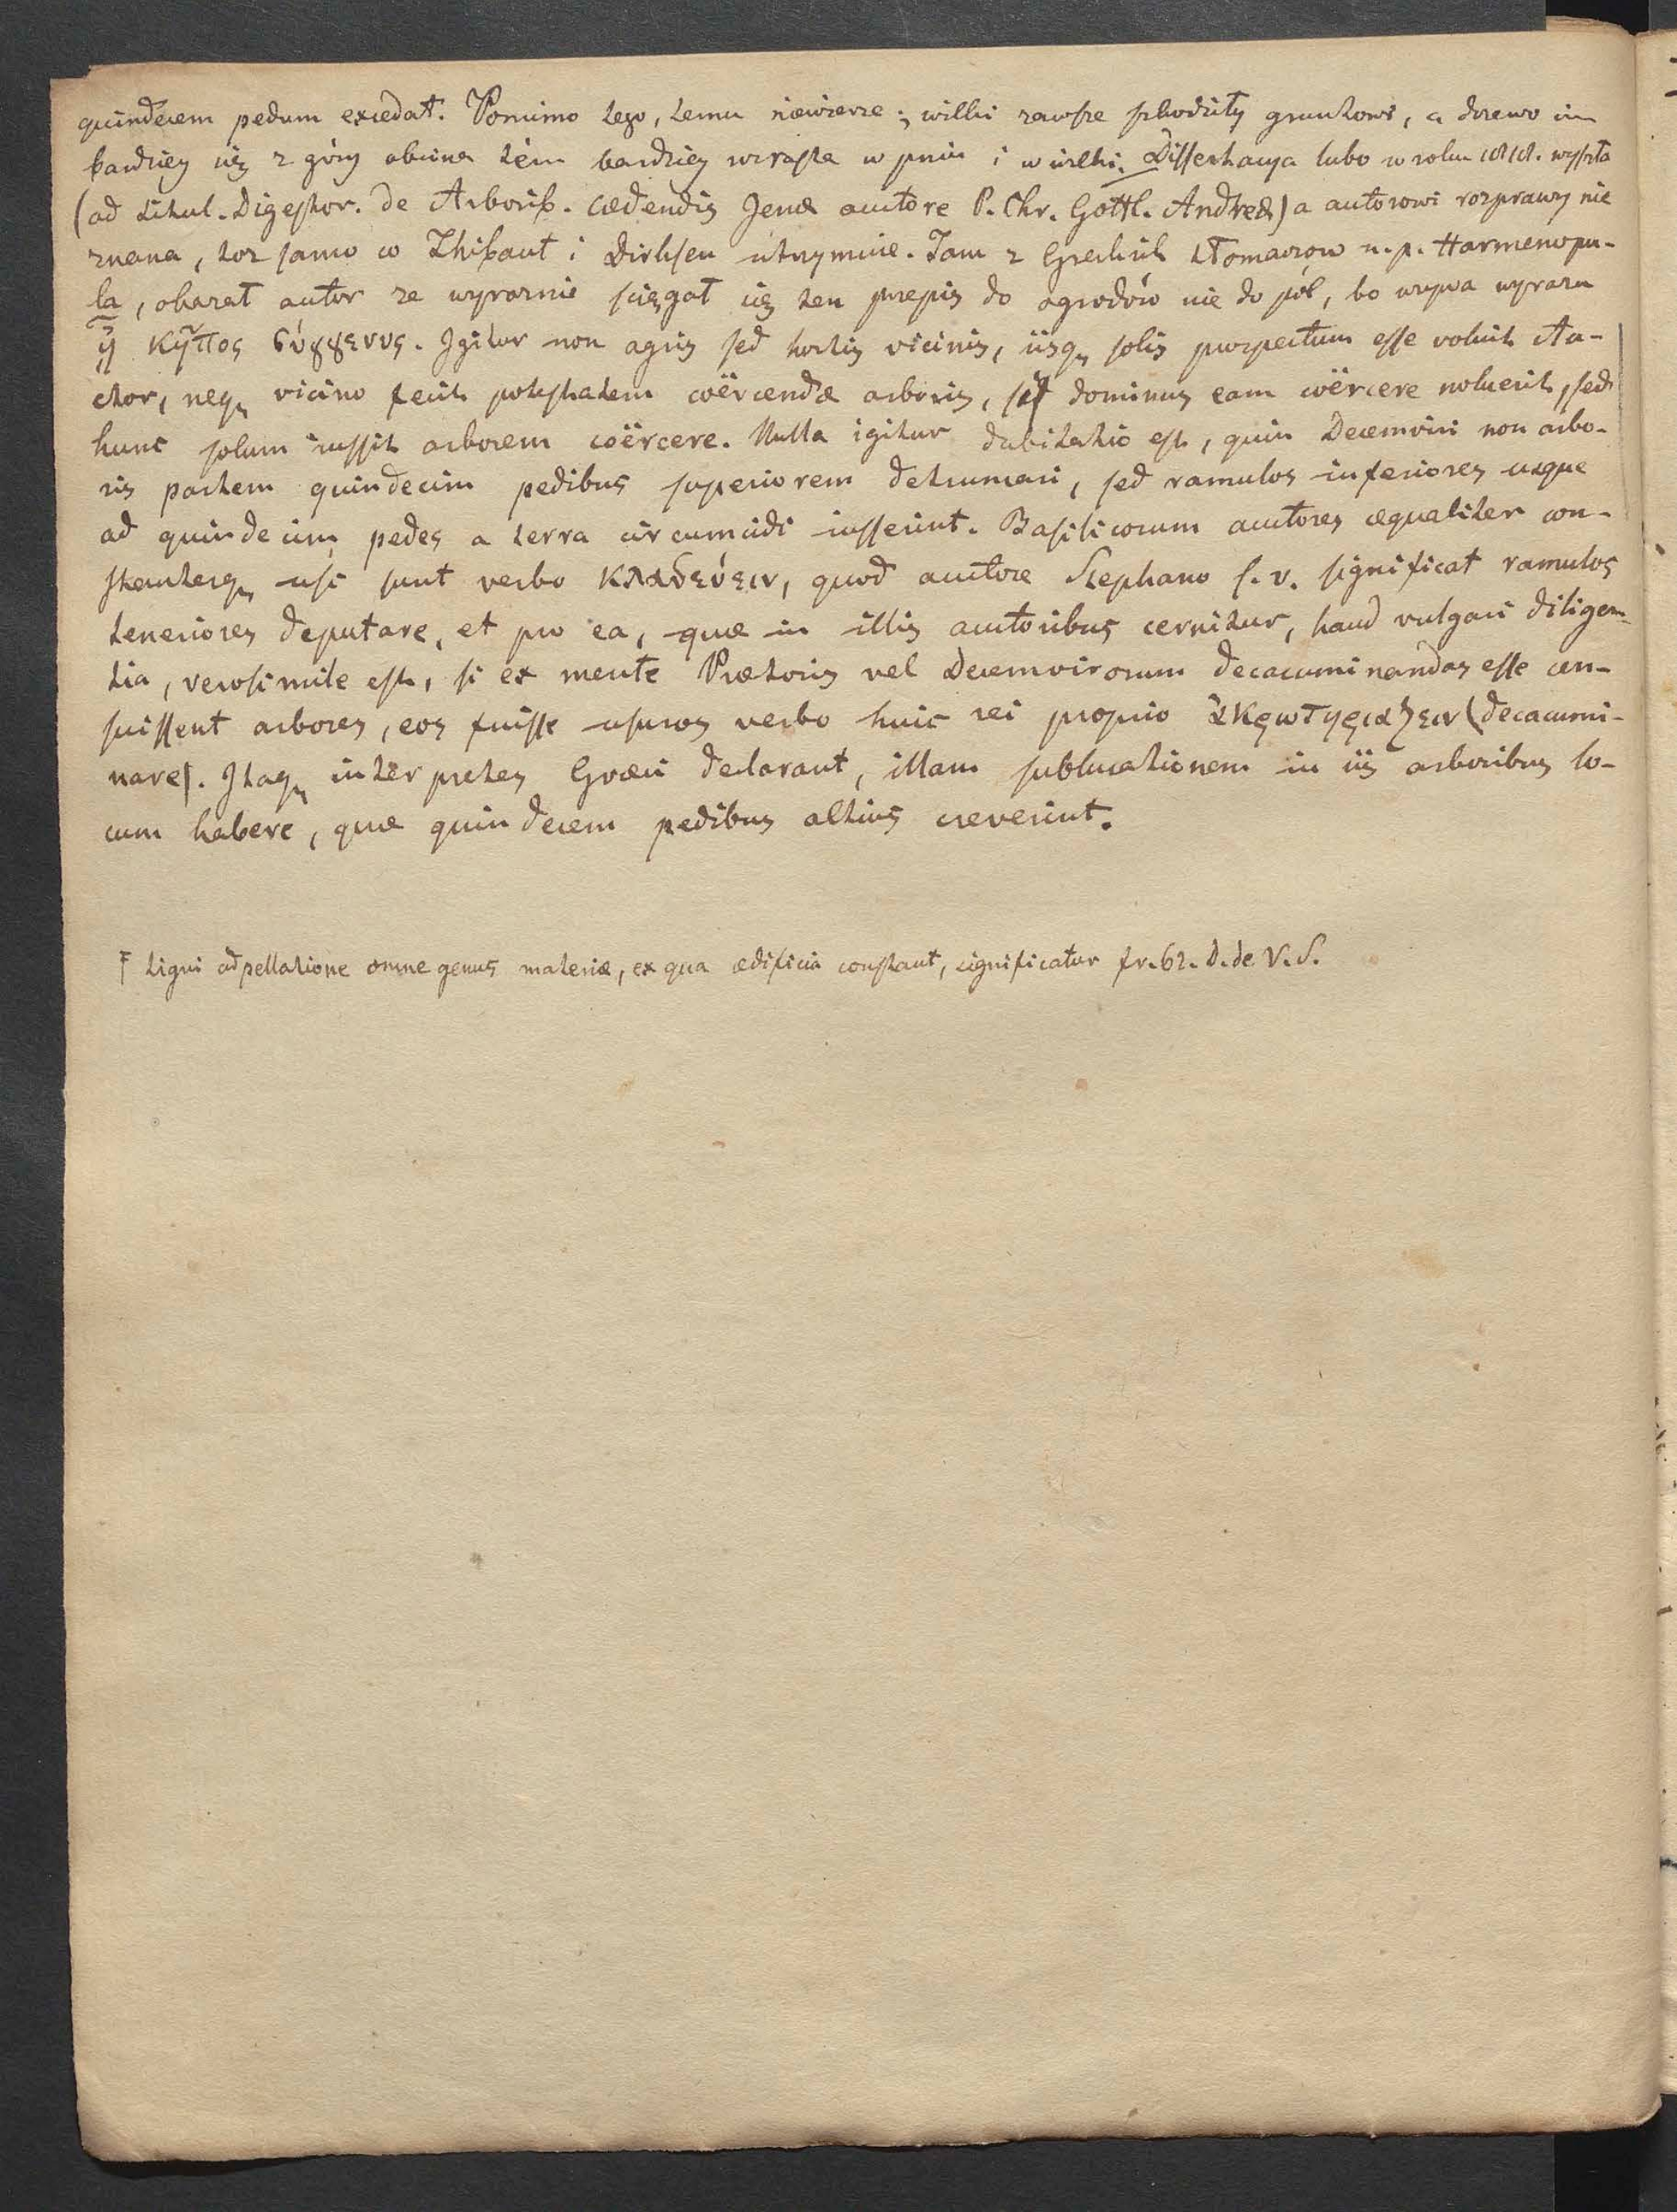 quindecem pedum exiedat. Pomimo tego, temu niewierze; wilki zawsze szkodziły gruntowi, a drzewo im
bardziey się z góry obcina tém bardziey wzrasta w pniu i w wilki. Dissertacya lubo w roku 1818. wyszła
(ad titul. Digestor. de Arborib. cædendis Jenæ auctore P. Chr. Gottl. Andreæ) a autorowi rozprawy nie
znana, toz samo co Thibaut i Dirksen utrzymuie. Tam z Greckich tłomaczow n. p. Harmenopu-
la, okazał autor ze wyraznie sciągał się ten przepis do ogrodów nie do pól, bo uzywa wyrazu
ἢ κῆπος σύγγενυς. Igitur non agris sed hortis vicinis, iisq. solis prospectum esse voluit Au-
ctor, neq. vicino fecit potestatem coërcendæ arboris, si dominus eam coërcere noluerit, sed
hunc solum iussit arborem coërcere. Nulla igitur dubitatio est, quin Decemviri non arbo-
ris partem quindecim pedibus superiorem detruncari, sed ramulos inferiores usque
ad quindecim pedes a terra circumcidi iusserint. Basilicorum auctores æqualiter con-
stanterq. usi sunt verbo κλαδεύειν, quod auctore Stephano s. v. significat ramulos
teneriores deputare, et pro ea, quæ in illis auctoribus cernitur, haud vulgari diligen-
tia, verosimile est, si ex mente Prætoris vel Decemvirorum decacuminandas esse cen-
suissent arbores, eos fuisse usuros verbo huic rei proprio ἀκρωτηριάζειν (decacumi-
nare). Itaq. interpretes Græci declarant, illam sublucationem in iis arboribus lo-
cum habere, quæ quindecem pedibus altius creverint.
Ŧ tigni adpellatione omne genus materiæ, ex qua ædificia constant, significatur fr. 62. D. de V. S.